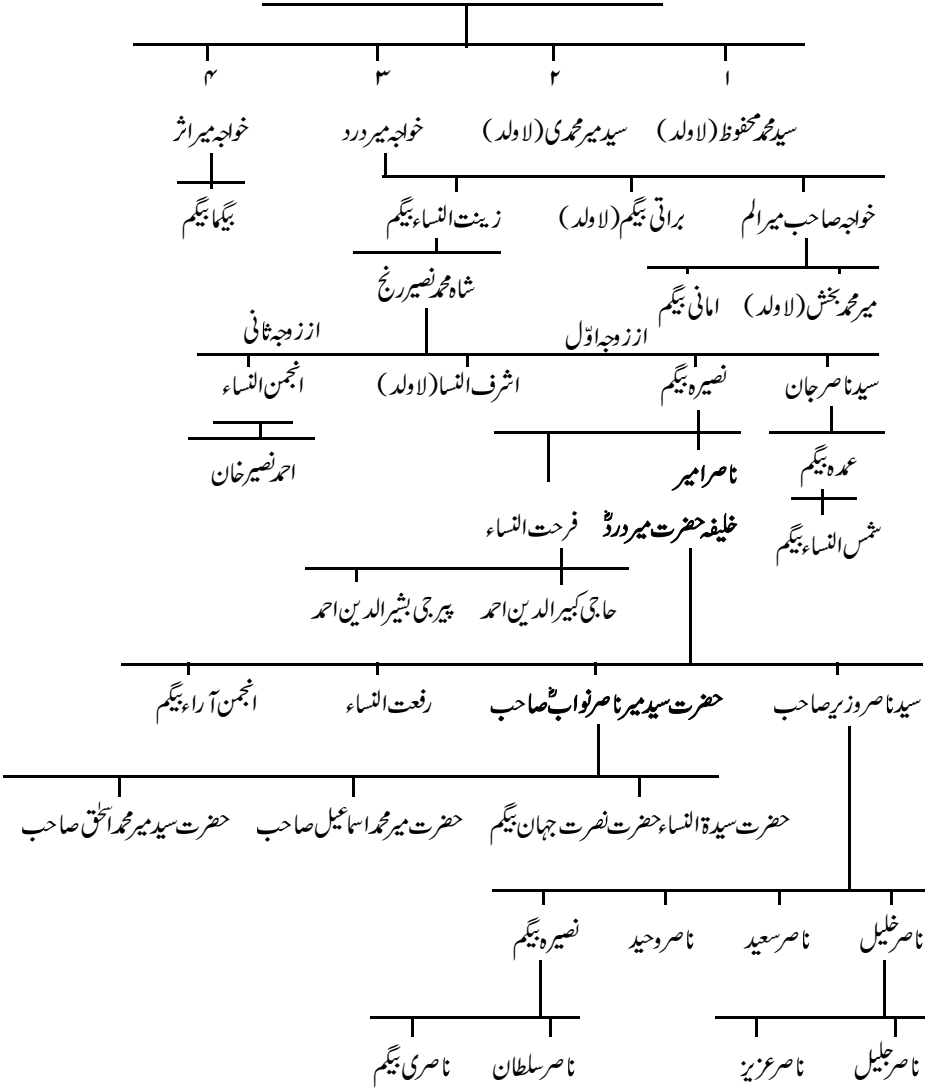 ۱ ۲ ۳ ۴
سید محمد محفوظ (لا ولد) سید میر محمدی (لا ولد) خواجہ میر درد خواجہ میر اثر
خواجہ صاحب میر الم براتی بیگم (لا ولد) زینت النساء بیگم بیگما بیگم
شاہ محمد نصیر رنج
میر محمد بخش (لا ولد) امانی بیگم
از زوجہ اوّل از زوجہ ثانی
سید ناصر جان نصیرہ بیگم اشرف النسا (لا ولد) انجمن النساء
عمدہ بیگم ناصر امیر احمد نصیر خان
خلیفہ حضرت میر دردؒ فرحت النساء
شمس النساء بیگم
حاجی کبیر الدین احمد پیر جی بشیر الدین احمد
سید ناصر وزیر صاحب حضرت سید میر ناصر نوابؓ صاحب رفعت النساء انجمن آراء بیگم
حضرت سیدۃ النساء حضرت نصرت جہان بیگم حضرت میر محمد اسماعیل صاحب حضرت سید میر محمد اسحٰق صاحب
ناصر خلیل ناصر سعید ناصر وحید نصیرہ بیگم
ناصر جلیل ناصر عزیز ناصر سلطان ناصری بیگم